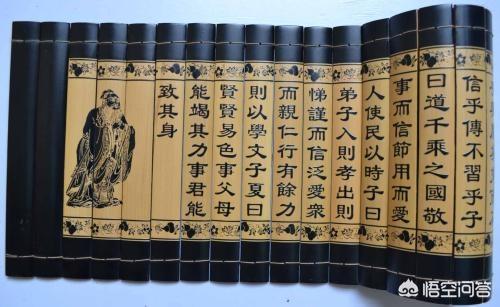 信乎傳不習乎子
曰道千乘之國敬
事而信節用而愛
人使民以時子曰
弟子入則孝出則
悌謹而信泛愛衆
而親仁行有餘力
則以學文子夏曰
賢賢易色事父母
能竭其力事君能
致其身
悟空问答